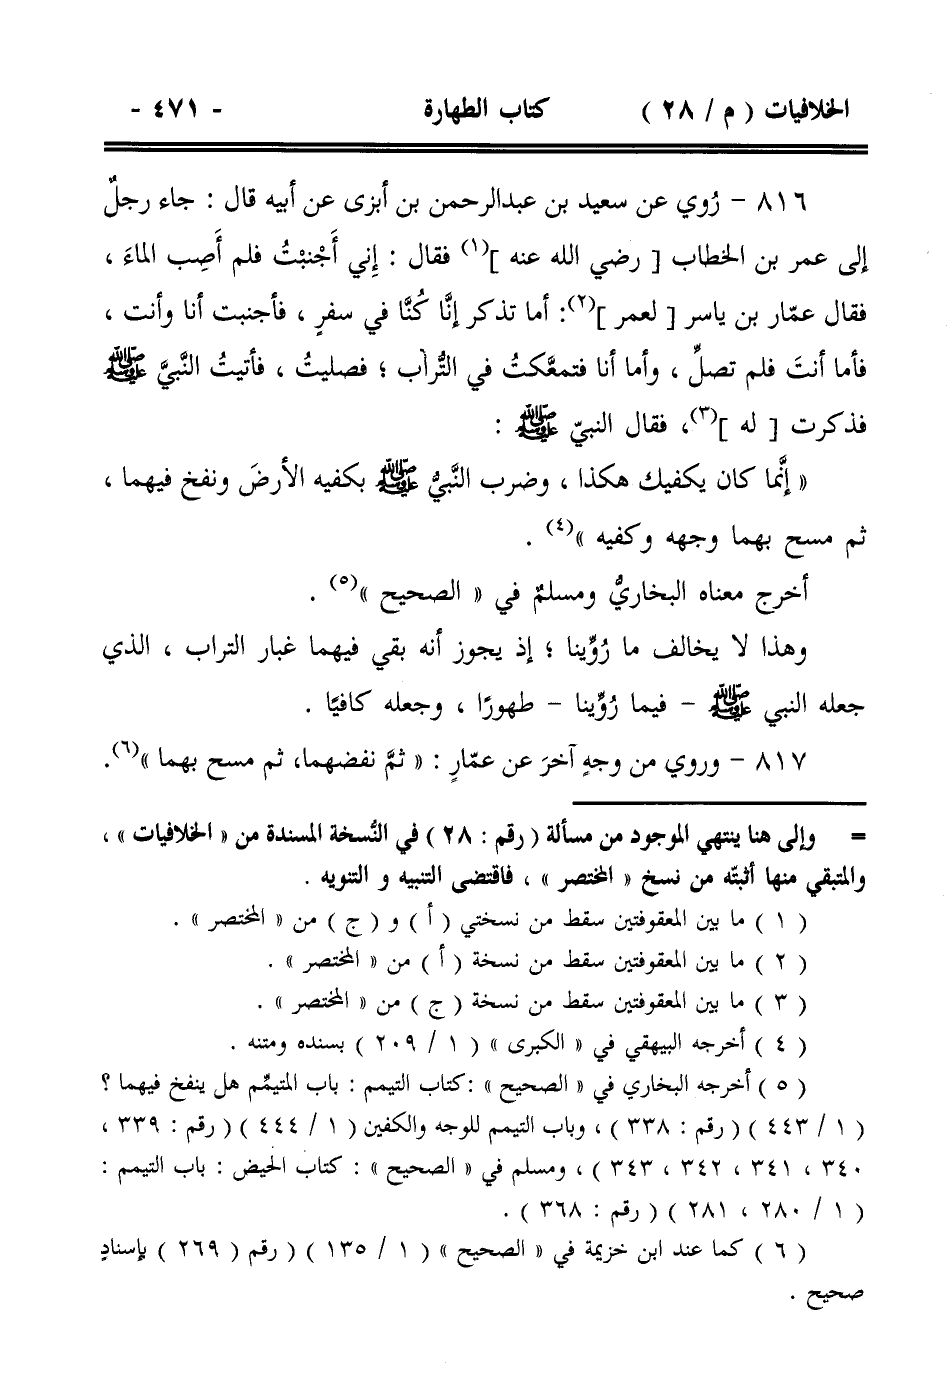 الخلافيات ( م / ٢٨ ) كتاب الطهارة - ٤٧١ -
٨١٦ - رُوي عن سعيد بن عبدالرحمن بن أبزى عن أبيه قال : جاء رجلٌ
إلى عمر بن الخطاب [ رضي الله عنه ](١) فقال : إِني أَجْنبْتُ فلم أَصِب الماءَ ،
فقال عمّار بن ياسر [ لعمر ](٢): أما تذكر إنَّا كُنَّا في سفرٍ ، فأجنبت أنا وأنت ،
فأما أنتَ فلم تصلِّ ، وأما أنا فتمعَّكتُ في التُّراب ؛ فصليتُ ، فأتيتُ النَّبيَّ ﷺ
فذكرت [ له ](٣)، فقال النبيّ ﷺ :
« إنَّما كان يكفيك هكذا ، وضرب النَّبيُّ ﷺ بكفيه الأرضَ ونفخ فيهما ،
ثم مسح بهما وجهه وكفيه »(٤) .
أخرج معناه البخاريُّ ومسلمٌ في « الصحيح »(٥) .
وهذا لا يخالف ما رُوِّينا ؛ إذ يجوز أنه بقي فيهما غبار التراب ، الذي
جعله النبي ﷺ - فيما رُوِّينا - طهورًا ، وجعله كافيًا .
٨١٧ - وروي من وجهٍ آخرَ عن عمّارٍ : « ثمَّ نفضهما، ثم مسح بهما »(٦).
= وإلى هنا ينتهي الموجود من مسألة ( رقم : ٢٨ ) في النُّسخة المسندة من « الخلافيات » ،
والمتبقي منها أثبتّه من نسخ « المختصر » ، فاقتضى التنبيه و التنويه .
( ١ ) ما بين المعقوفتين سقط من نسختي ( أ ) و ( ج ) من « المختصر » .
( ٢ ) ما بين المعقوفتين سقط من نسخة ( أ ) من « المختصر » .
( ٣ ) ما بين المعقوفتين سقط من نسخة ( ج ) من « المختصر » .
( ٤ ) أخرجه البيهقي في « الكبرى » ( ١ / ٢٠٩ ) بسنده ومتنه .
( ٥ ) أخرجه البخاري في « الصحيح » :كتاب التيمم : باب المتيمِّم هل ينفخ فيهما ؟
( ١ / ٤٤٣ ) ( رقم : ٣٣٨ ) ، وباب التيمم للوجه والكفين ( ١ / ٤٤٤ ) ( رقم : ٣٣٩ ،
٣٤٠ ، ٣٤١ ، ٣٤٢ ، ٣٤٣ ) ، ومسلم في « الصحيح » : كتاب الحيض : باب التيمم :
( ١ / ٢٨٠ ، ٢٨١ ) ( رقم : ٣٦٨ ) .
( ٦ ) كما عند ابن خزيمة في « الصحيح » ( ١ / ١٣٥ ) ( رقم ( ٢٦٩ ) بإسنادٍ
صحيح .